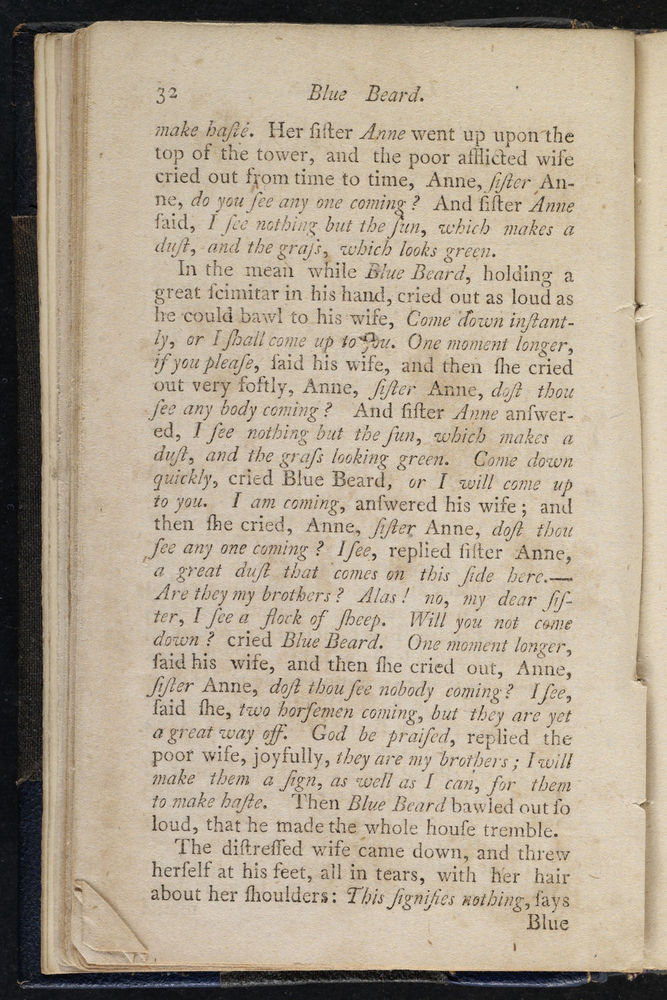 32 Blue Beard.
make haſte. Her ſiſter Anne went up upon the
top of the tower, and the poor afflicted wife
cried out from time to time, Anne, ſiſter An-
ne, do you ſee any one coming? And ſiſter Anne
ſaid, I ſee nothing but the ſun, which makes a
duſt, and the graſs, which looks green.
In the mean while Blue Beard, holding a
great ſcimitar in his hand, cried out as loud as
he could bawl to his wife, Come down inſtant-
ly, or I ſhall come up to you. One moment longer,
if you pleaſe, ſaid his wife, and then ſhe cried
out very ſoftly, Anne, ſiſter Anne, doſt thou
ſee any body coming? And ſiſter Anne anſwer-
ed, I ſee nothing but the ſun, which makes a
duſt, and the graſs looking green. Come down
quickly, cried Blue Beard, or I will come up
to you. I am coming, anſwered his wife; and
then ſhe cried, Anne, ſiſter Anne, doſt thou
ſee any one coming? I ſee, replied ſiſter Anne,
a great duſt that comes on this ſide here.—
Are they my brothers? Alas! no, my dear ſiſ-
ter, I ſee a flock of ſheep. Will you not come
down? cried Blue Beard. One moment longer,
ſaid his wife, and then ſhe cried out, Anne,
ſiſter Anne, doſt thou ſee nobody coming? I ſee,
ſaid ſhe, two horſemen coming, but they are yet
a great way off. God be praiſed, replied the
poor wife, joyfully, they are my brothers; I will
make them a ſign, as well as I can, for them
to make haſte. Then Blue Beard bawled out ſo
loud, that he made the whole houſe tremble.
The diſtreſſed wife came down, and threw
herſelf at his feet, all in tears, with her hair
about her ſhoulders: This ſignifies nothing, ſays
Blue